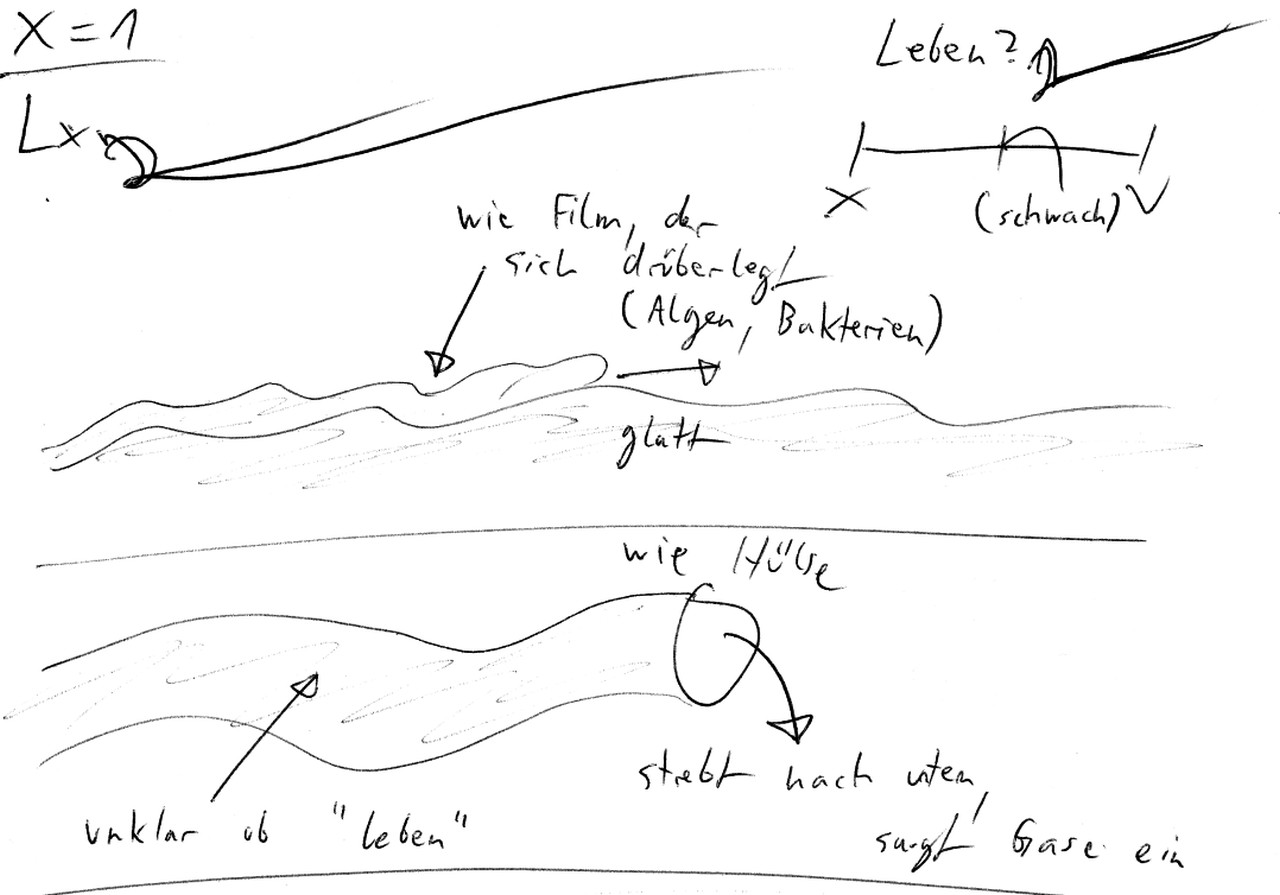 X = 1
Leben?
Lx
X
(schwach)
V
wie Film, der
sich drüberlegt
(Algen, Bakterien)
glatt
wie Hülse
strebt nach unten,
saugt Gase ein
unklar ob "leben"